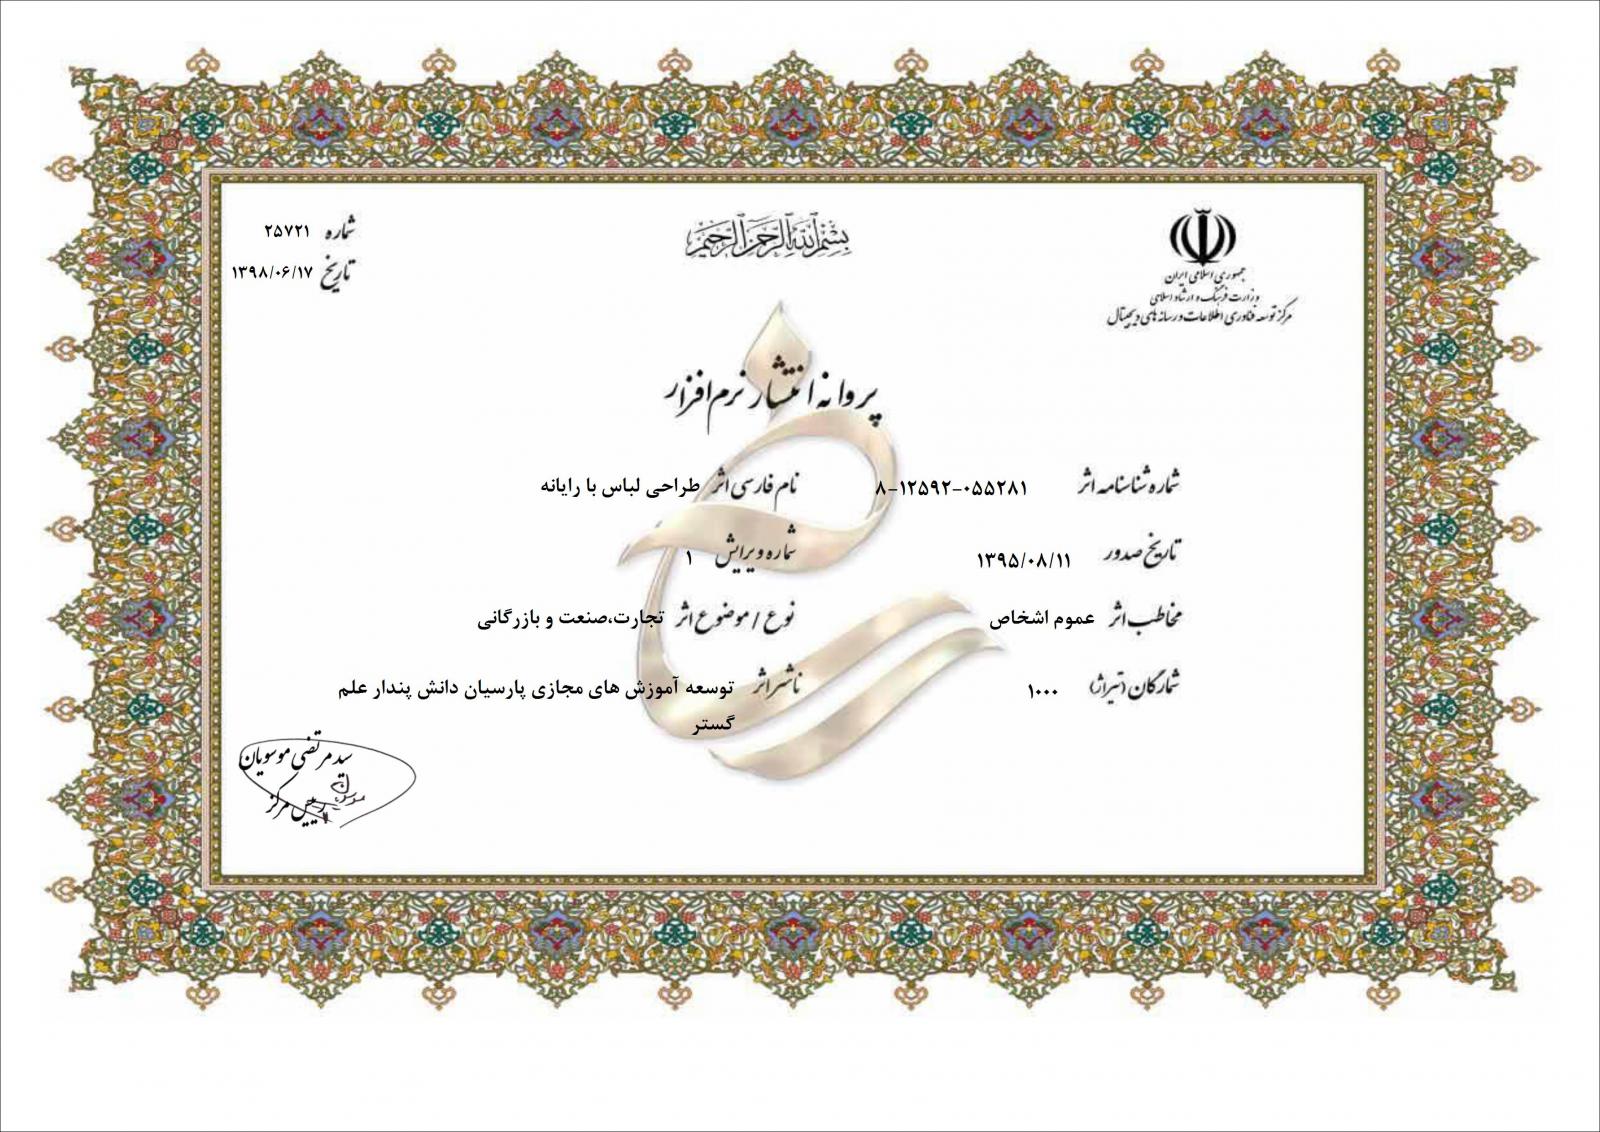 بسم الله الرحمن الرحیم
جمهوری اسلامی ایران
وزارت فرهنگ و ارشاد اسلامی
مرکز توسعه فناوری اطلاعات و رسانه های دیجیتال
شماره ۲۵۷۲۱
تاریخ ۱۳۹۸/۰۶/۱۷
پروانه انتشار نرم افزار
شماره شناسنامه اثر ۸-۱۲۵۹۲-۰۵۵۲۸۱ نام فارسی اثر طراحی لباس با رایانه
تاریخ صدور ۱۳۹۵/۰۸/۱۱ شماره ویرایش ۱
مخاطب اثر عموم اشخاص نوع / موضوع اثر تجارت،صنعت و بازرگانی
شمارگان (تیراژ) ۱۰۰۰ ناشر اثر توسعه آموزش های مجازی پارسیان دانش پندار علم
گستر
سید مرتضی موسویان
رییس مرکز